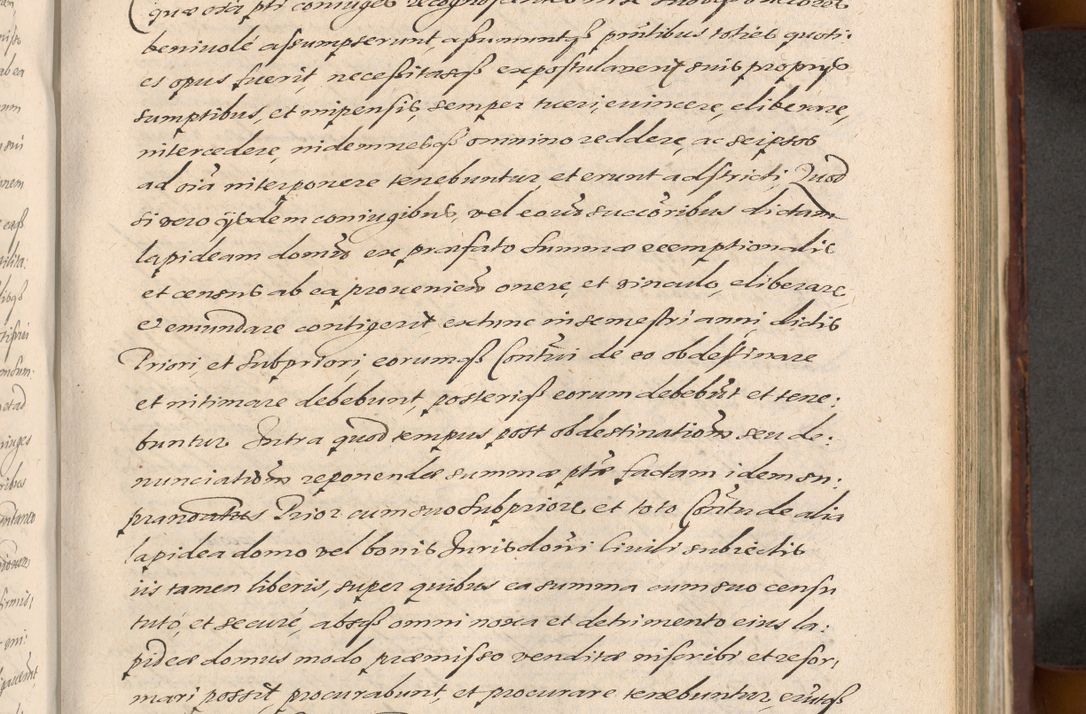 beniuolé assumpserunt, assumuntq̃ pñtibus toties quoti:
es opus fuerit, necessitasq̃ expostulauerit suis proprijs
sumptibus, et impensis, semper tueri, euincere, eliberare,
intercedere, indemnesq̃ omnino reddere, ac seipsos
ad oiã interponere tenebuntur, et erunt adstricti, Quod
si vero ijsdem coniugibus, vel eorũ succõribus dictam
lapideam domũ ex præfato summæ reemptionalis
et census ab ea prouenieñ onere, et vinculo, eliberare,
et emundare contigerit extunc in semestri anni dictis
Priori et Subpriori, eorumq̃ Conũtui de eo obdestinare
et intimare debebunt, posteriq̃ eorum debebũt et tene:
buntur. Intra quod tempus post obdestinationẽ seu de:
nunciationẽ reponendæ summæ ptæ factam idem su:
pranotatus Prior cum suo Subpriore, et toto Conũtu de alia
lapidea domo vel bonis Jurisdõni Ciuili subiectis
iis tamen liberis, super quibus ea summa cum suo censu
tutó, et securé, absq̃ omni noxa et detrimento eius la:
pideæ domus modo præmisso venditæ inscribi et refor,
mari possit, procurabunt, et procurare tenebuntur, eiusq̃